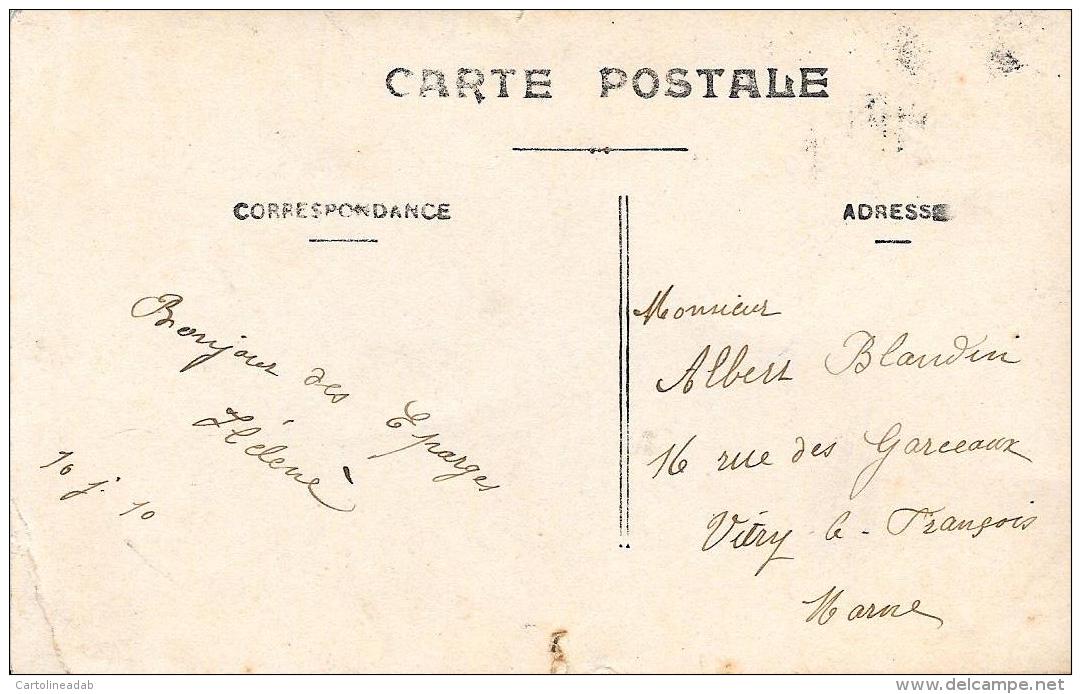 CARTE POSTALE
CORRESPONDANCE
ADRESSE
Bonjour des Eparges
Hélène
16 j. 10
Monsieur
Albert Blandin
16 rue des Garceaux
Vitry-le-François
Marne
Cartolineadab
delcampe.net